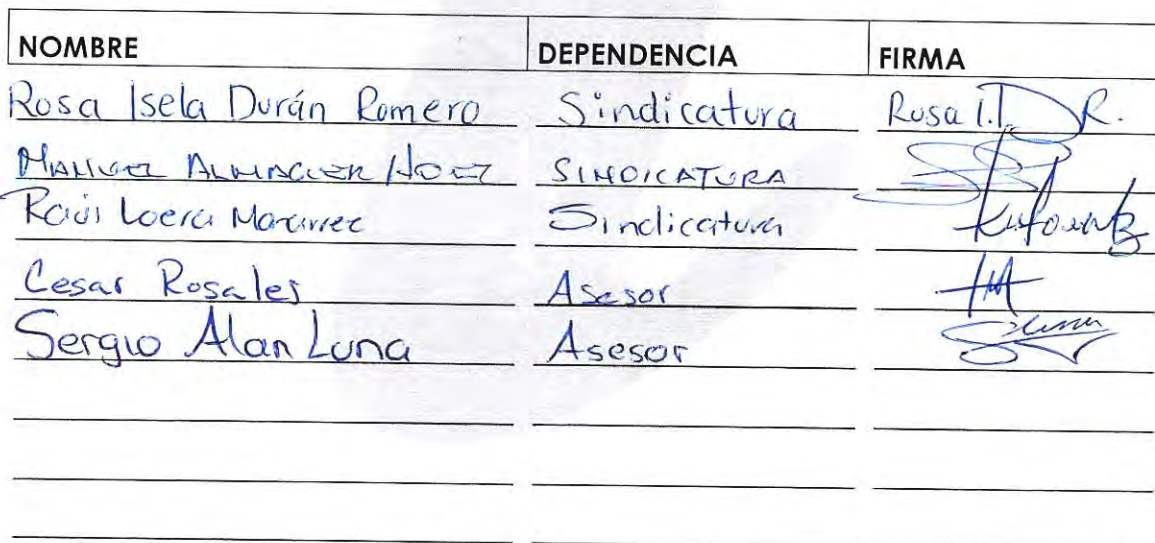 NOMBRE DEPENDENCIA FIRMA
Rosa Isela Durán Romero Sindicatura Rosa I. D. R.
MANUEL ALMAGUER SINDICATURA
Raúl Loera Sindicatura
Cesar Rosales Asesor
Sergio Alan Luna Asesor